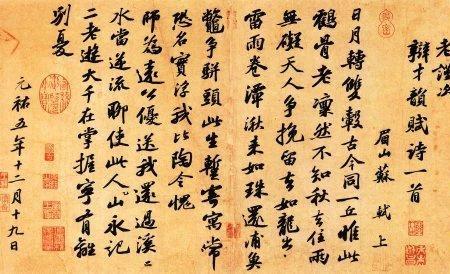 老謹次
辯才韻賦詩一首
眉山蘇軾上
日月轉雙轂古今同一丘惟此
鶴骨老凜然不知秋去住兩
無礙天人爭挽留去如龍出
雷雨卷潭湫來如珠還浦魚
鱉爭駢頭此生暫寄寓常
恐名實浮我比陶令愧
師為遠公優送我還過溪〻
水當逆流聊使此人山永記
二老遊大千在掌握寧有離
別憂
元祐五年十二月十九日